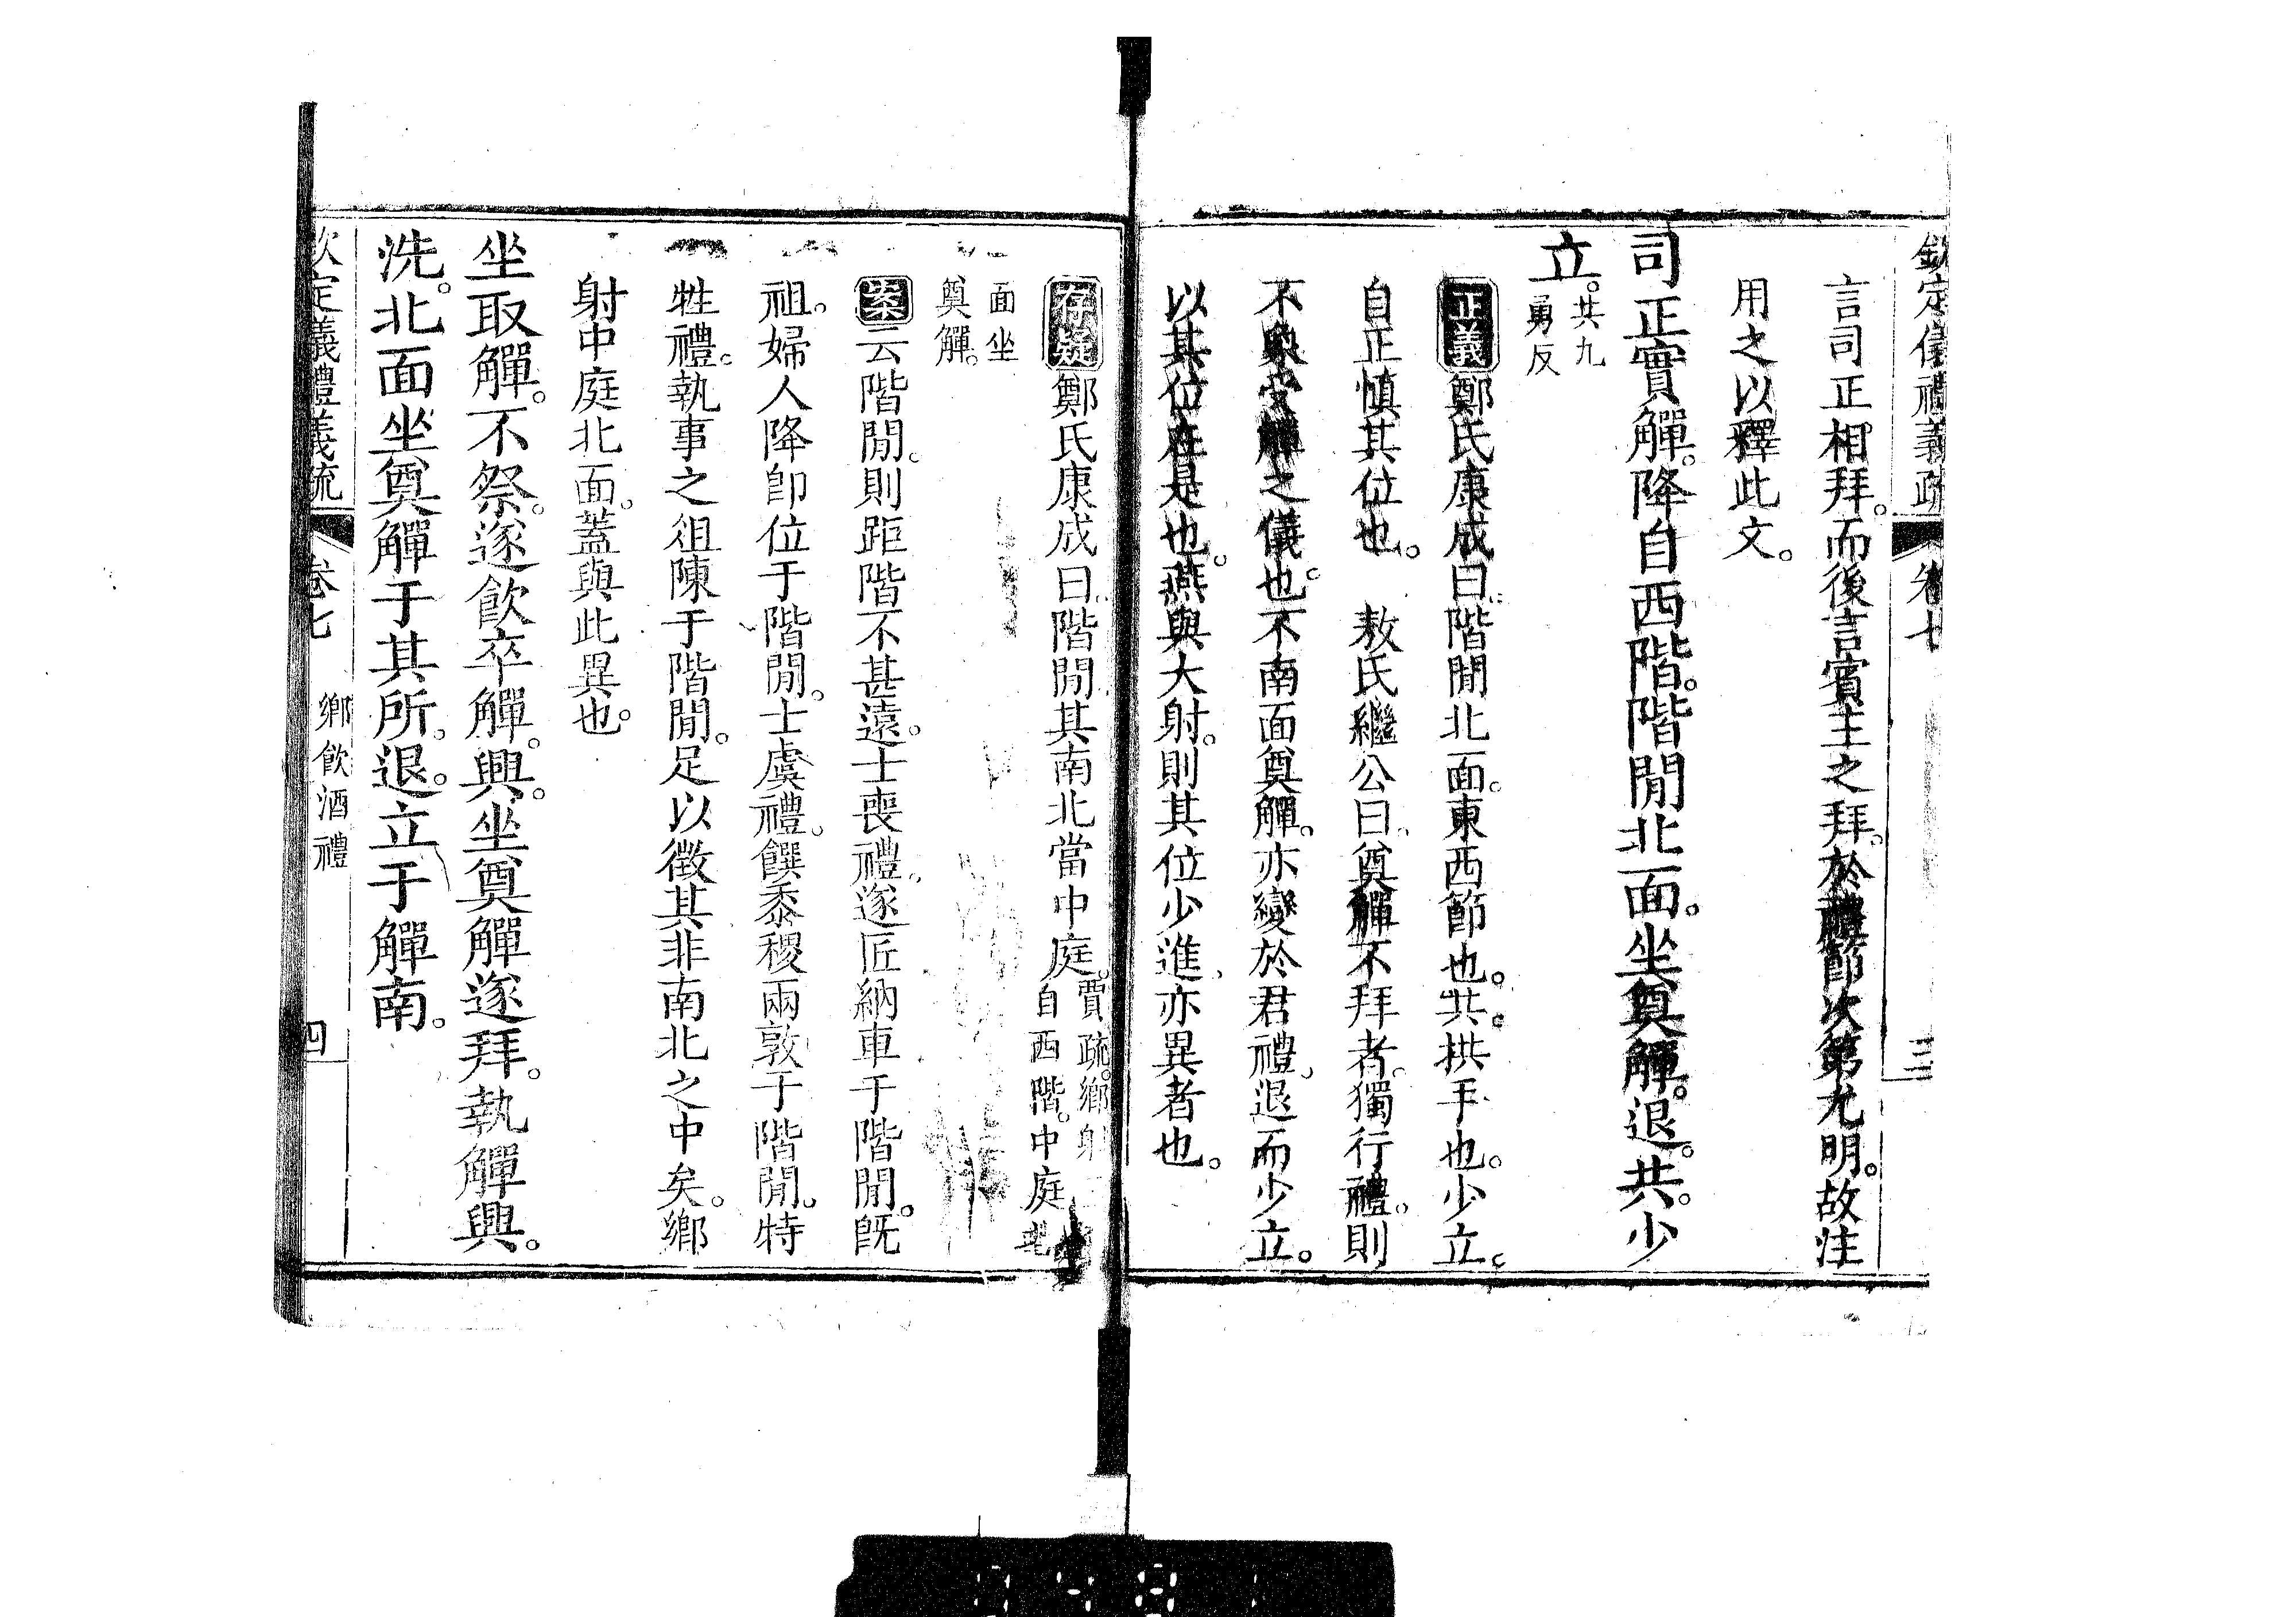 欽定儀禮義疏 卷七 三
言司正相拜。而後言賓主之拜。於禮節次第尤明。故注
用之以釋此文。
司正實觶。降自西階。階閒北面。坐奠觶。退。共。少
立。共九勇反
正義鄭氏康成曰。階閒北面。東西節也。共。拱手也。少立。
自正愼其位也。 敖氏繼公曰。奠觶不拜者。獨行禮。則
不象受觶之儀也。不南面奠觶。亦變於君禮。退而少立。
以其位在是也。燕與大射。則其位少進。亦異者也。
存疑鄭氏康成曰。階閒其南北當中庭。賈疏。鄉射自西階。中庭北
面坐奠觶。
案云階閒。則距階不甚遠。士喪禮。遂匠納車于階閒。旣
祖。婦人降卽位于階閒。士虞禮。饌黍稷兩敦于階閒。特
牲禮。執事之俎陳于階閒。足以徵其非南北之中矣。鄉
射中庭北面。蓋與此異也。
坐取觶。不祭。遂飮卒觶。興。坐奠觶遂拜。執觶興。
洗。北面坐奠觶于其所。退。立于觶南。
欽定儀禮義疏 卷七 鄉飮酒禮 四